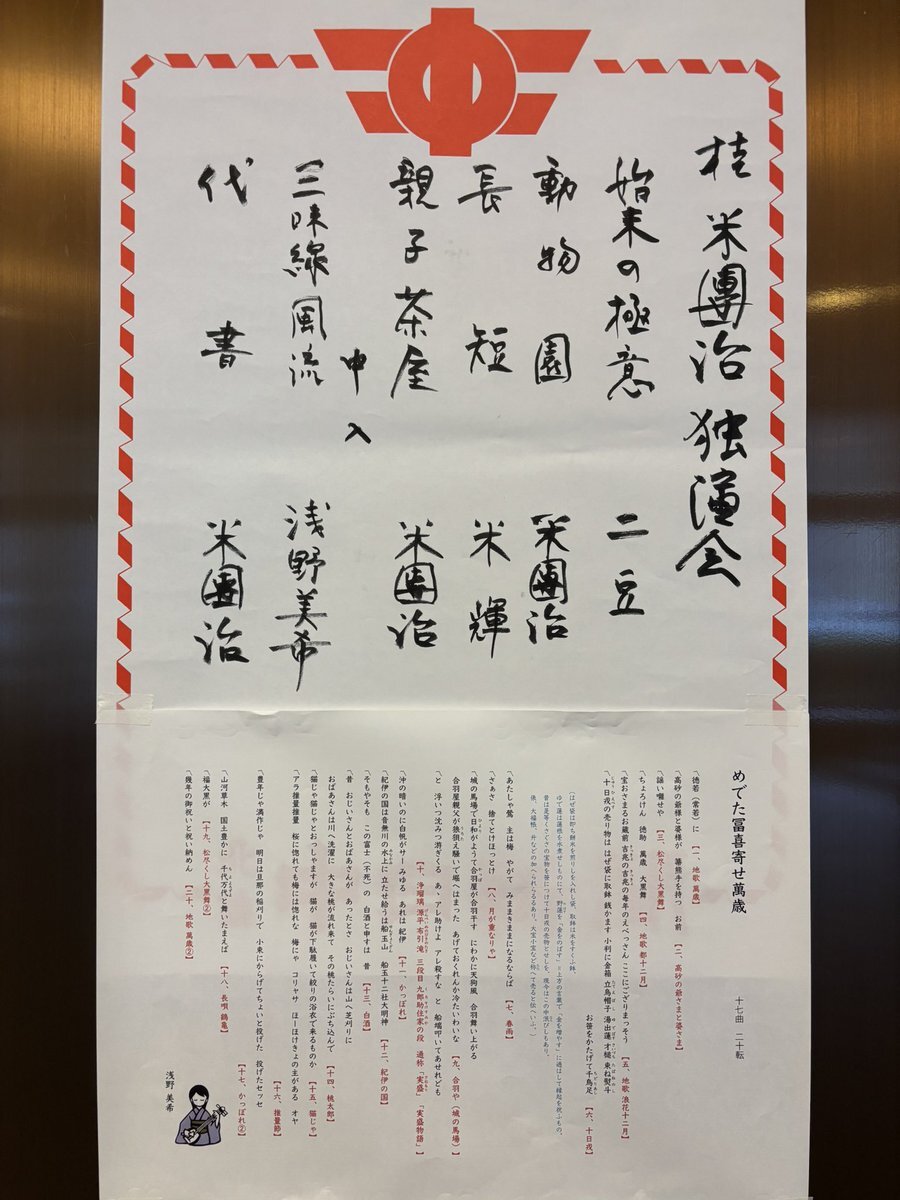 桂 米團治 独演会
始末の極意 二豆
動物園 米團治
長短 米輝
親子茶屋 米團治
中入
三味線風流 浅野美希
代書 米團治
めでた冨喜寄せ萬歳 十七曲 二十転
〽徳若(常若)に 【一、地歌 萬歳】
〽高砂の爺様と婆様が 箒熊手を持つ お前 【二、高砂の爺さまと婆さま】
〽謡い囃せや 【三、松尽くし大黒舞】
〽ちょろけん 徳助 萬歳 大黒舞 【四、地歌 都十二月】
〽宝おさまるお蔵前 吉兆の吉兆の毎年のえべっさん ここにござりまっそう 【五、地歌 浪花十二月】
〽十日戎の売り物は はぜ袋に取鉢 銭かます 小判に金箱 立烏帽子 湯出蓮 才槌 束ね熨斗
お笹をかたげて千鳥足 【六、十日戎】
〽あたしゃ鶯 主は梅 やがて みままきままになるならば 【七、春雨】
〽さぁさ 捨てとけほっとけ 【八、月が重なりゃ】
〽城の馬場で日和がようて合羽屋が合羽干す にわかに天狗風 合羽舞い上がる
合羽屋親父が狼狽え騒いで堀へはまった あげておくれんか冷たいわいな 【九、合羽や(城の馬場)】
〽と 浮いつ沈みつ游ぎくる あゝアレ助けよ アレ殺すな と 船端叩いてあせれども
【十、浄瑠璃 源平布引滝 三段目 九郎助住家の段 通称「実盛」「実盛物語」】
〽沖の暗いのに白帆がサーみゆる あれは紀伊 【十一、かっぽれ】
〽紀伊の国は音無川の水上に立たせ給うは船玉山 船玉十二社大明神 【十二、紀伊の国】
〽そもやそも この富士(不死)の 白酒と申すは 昔 【十三、白酒】
〽昔 おじいさんとおばあさんが あったとさ おじいさんは山へ芝刈りに
おばあさんは川へ洗濯に 大きな桃が流れ来て その桃たらいにぶち込んで 【十四、桃太郎】
〽猫じゃ猫じゃとおっしゃますが 猫が 猫が下駄履いて絞りの浴衣で来るものか 【十五、猫じゃ】
〽アラ推量推量 桜に惚れても梅には惚れな 梅にゃ コリャサ ほーほけきょの主がある オヤ
【十六、推量節】
〽豊年じゃ満作じゃ 明日は旦那の稲刈りで 小束にからげてちょいと投げた 投げたセッセ
【十七、かっぽれ②】
〽山河草木 国土豊かに 千代万代と舞いたまえば 【十八、長唄 鶴亀】
〽福大黒が 【十九、松尽くし大黒舞②】
〽幾年の御祝いと祝い納めん 【二十、地歌 萬歳②】
浅野 美希